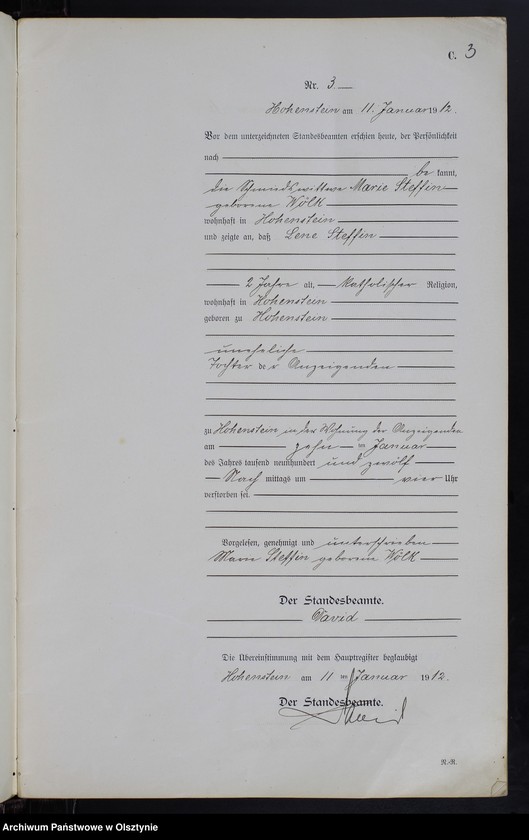 C. 3
Nr. 3.
Hohenstein am 11. Januar 1912.
Vor dem unterzeichneten Standesbeamten erschien heute, der Persönlichkeit
nach
be kannt,
die Schmiedswittwe Marie Steffin
geborene Wölk
wohnhaft in Hohenstein
und zeigte an, daß Lene Steffin
2 Jahre alt, katholischer Religion,
wohnhaft in Hohenstein
geboren zu Hohenstein
uneheliche
Tochter der Anzeigenden
zu Hohenstein in der Wohnung der Anzeigenden
am zehn ten Januar
des Jahres tausend neunhundert und zwölf
Nach mittags um vier Uhr
verstorben sei.
Vorgelesen, genehmigt und unterschrieben
Marie Steffin geborene Wölk
Der Standesbeamte.
David
Die Übereinstimmung mit dem Hauptregister beglaubigt
Hohenstein am 11 ten Januar 1912.
Der Standesbeamte.
David
N.-R.
Archiwum Państwowe w Olsztynie